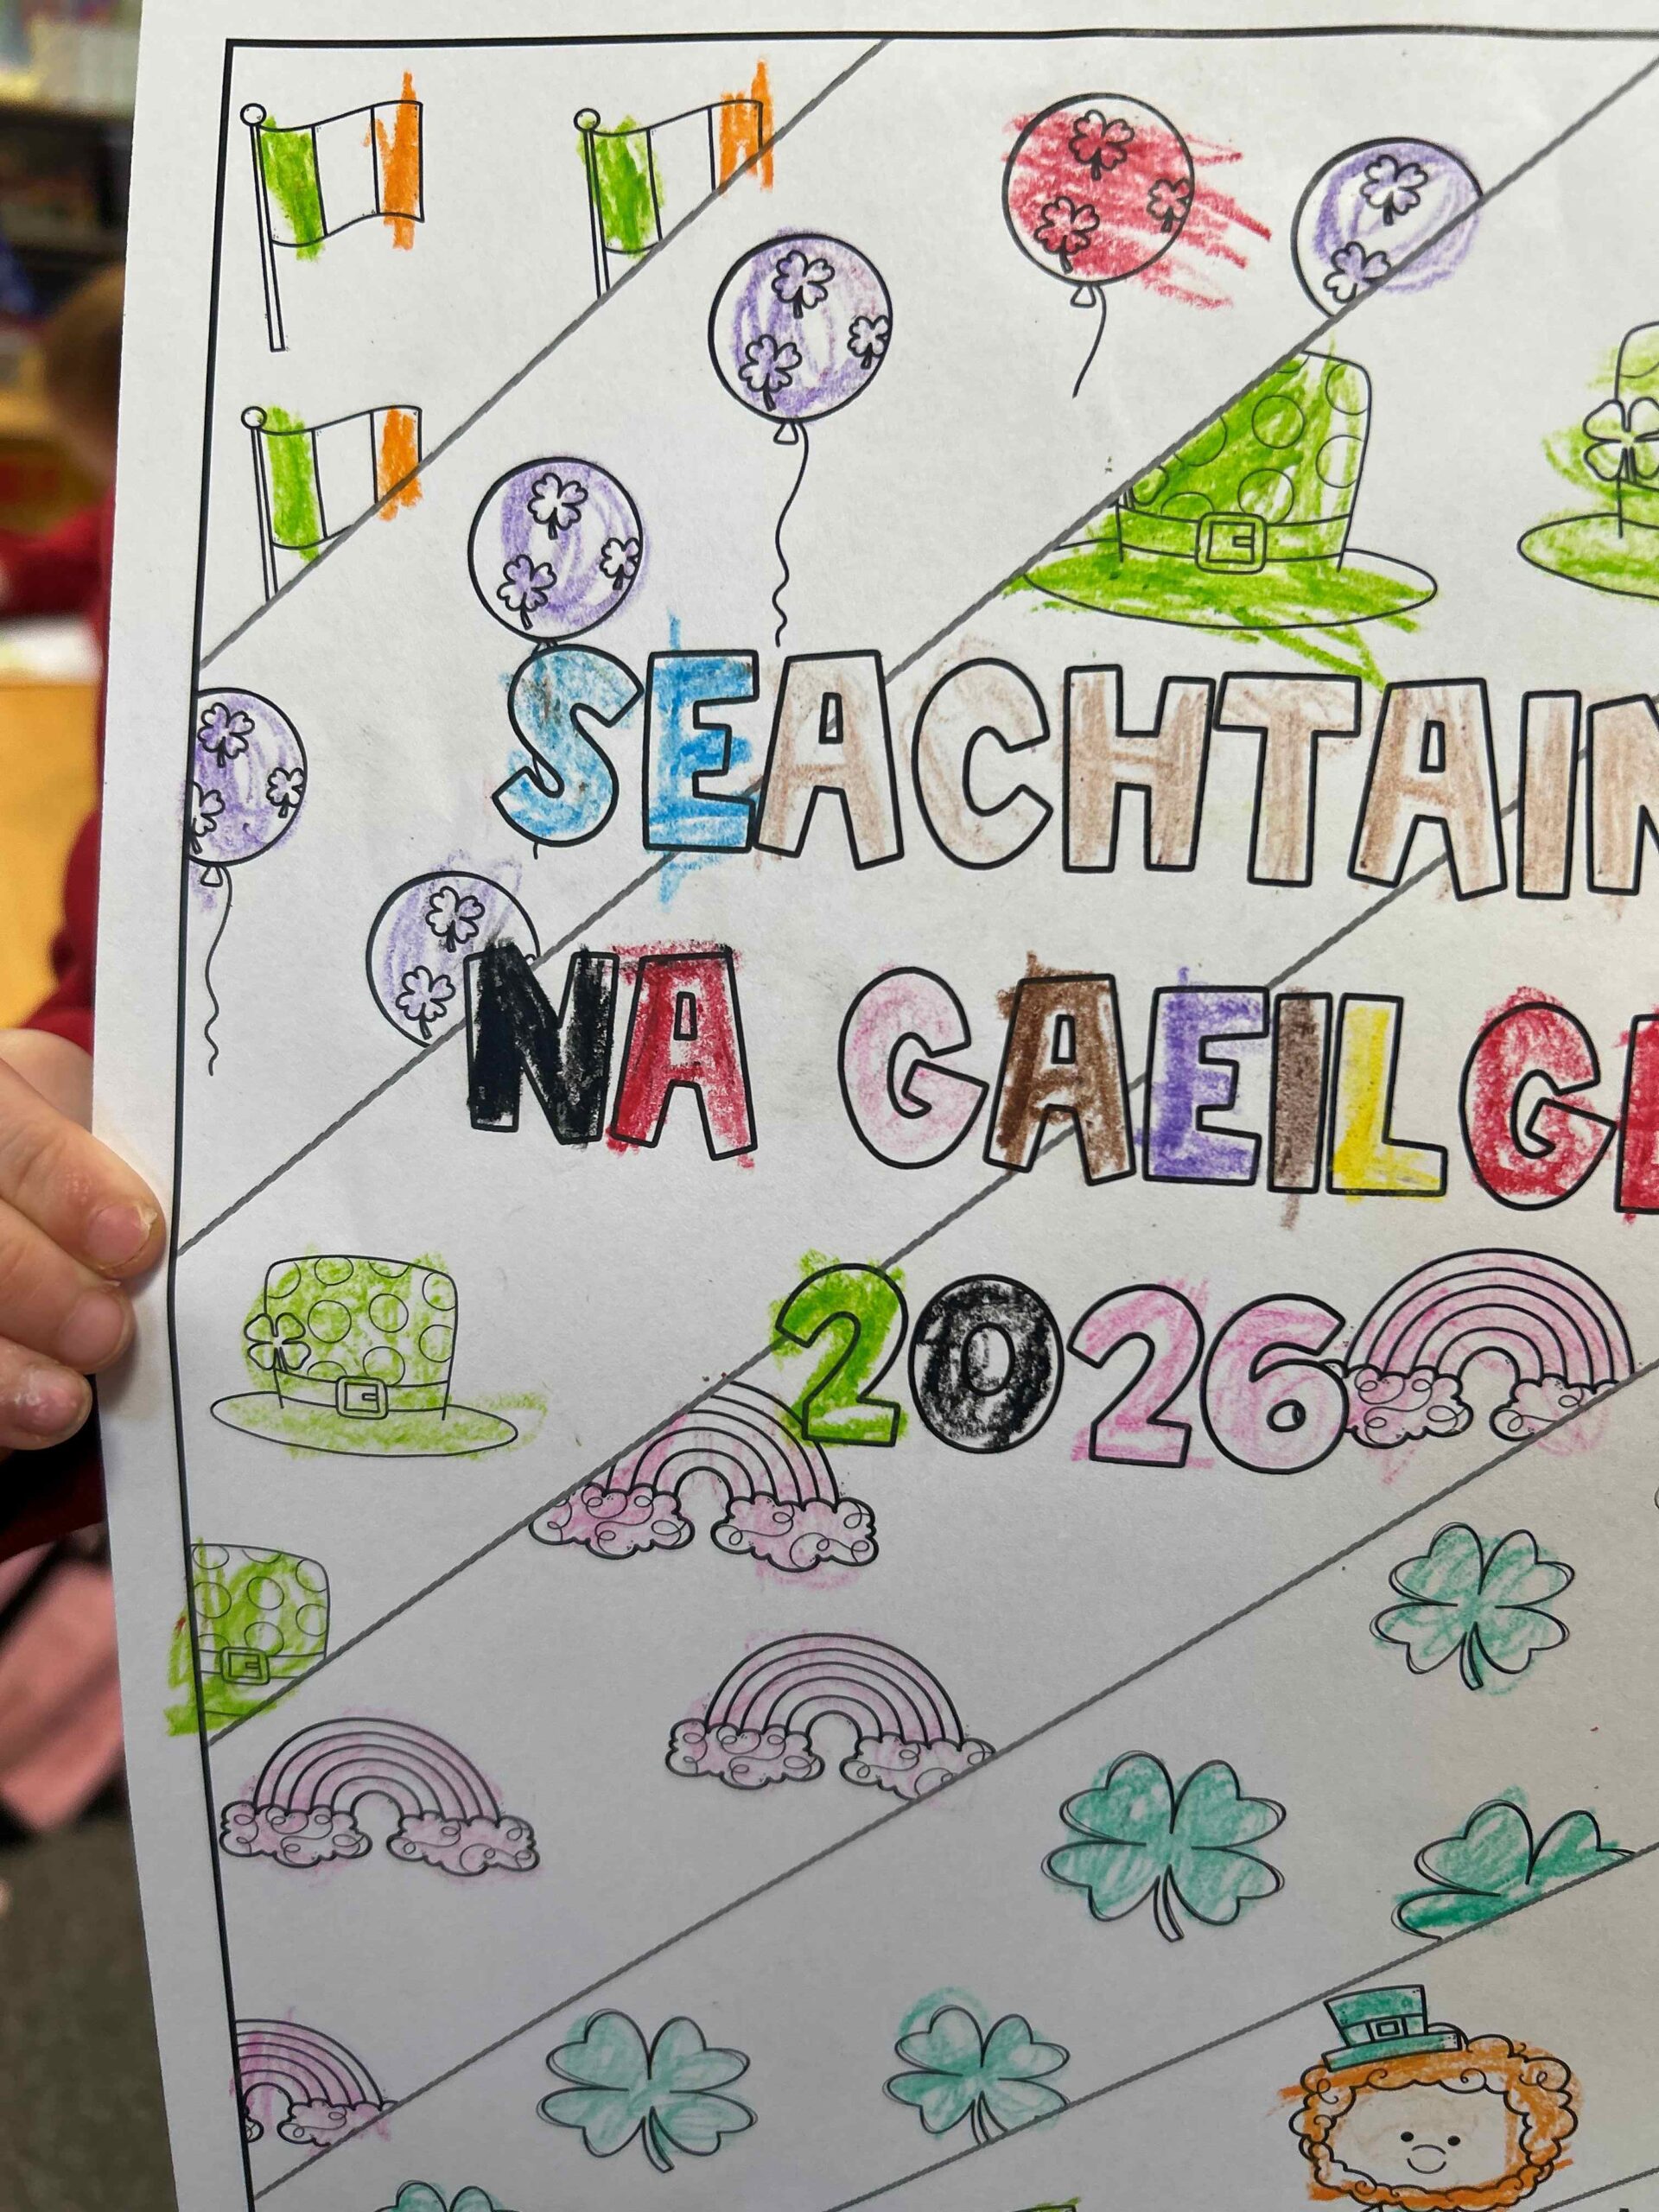 SEACHTAIN
NA GAEILGE
2026